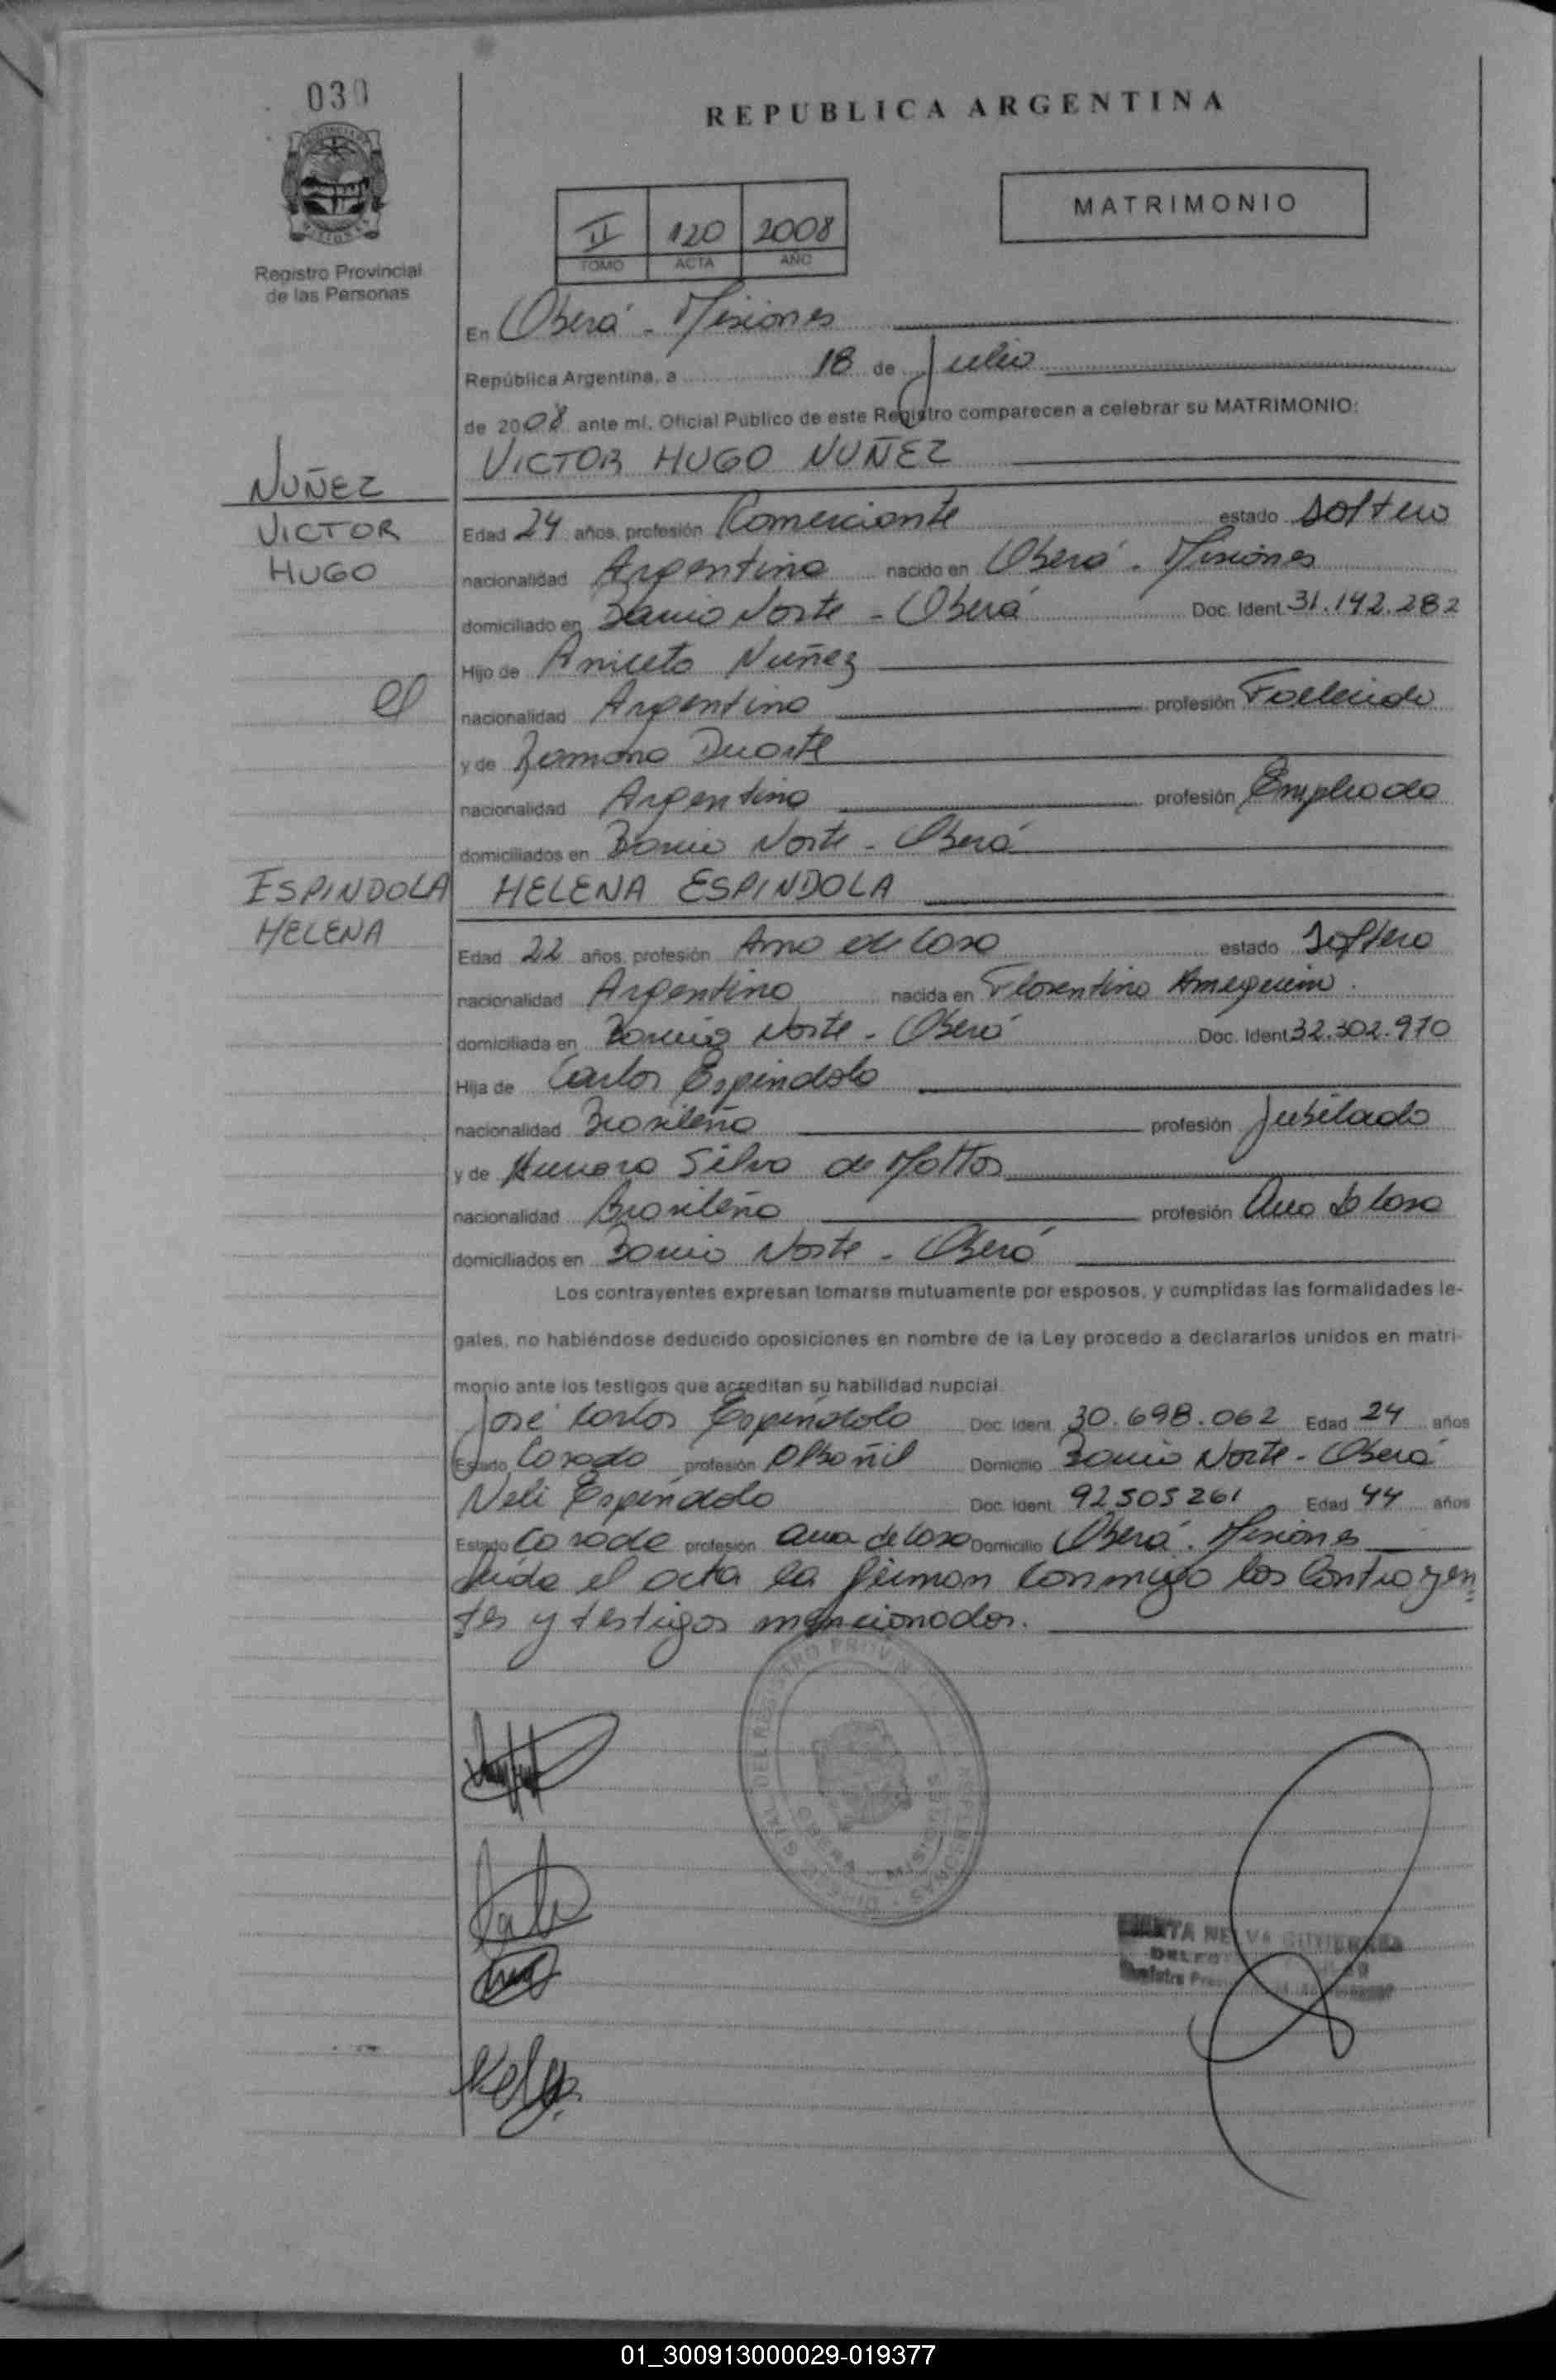 030
REPUBLICA ARGENTINA
MATRIMONIO
II 120 2008
TOMO ACTA AÑO
Registro Provincial
de las Personas
En Oberá - Misiones
República Argentina, a 18 de Julio
de 2008 ante mí, Oficial Público de este Registro comparecen a celebrar su MATRIMONIO:
NUÑEZ
VICTOR
HUGO
VICTOR HUGO NUÑEZ
Edad 24 años, profesión Comerciante estado soltero
nacionalidad Argentina nacido en Oberá - Misiones
domiciliado en Barrio Norte - Oberá Doc. Ident. 31.142.282
Hijo de Aniceto Nuñez
nacionalidad Argentina profesión Fallecido
y de Ramona Duarte
nacionalidad Argentina profesión Empleada
domiciliados en Barrio Norte - Oberá
ESPINDOLA
HELENA
HELENA ESPINDOLA
Edad 22 años, profesión Ama de Casa estado Soltera
nacionalidad Argentina nacida en Florentino Ameghino
domiciliada en Barrio Norte - Oberá Doc. Ident. 32.302.970
Hija de Carlos Espindola
nacionalidad Brasileña profesión Jubilado
y de Silva de Mattos
nacionalidad Brasileña profesión Ama de Casa
domiciliados en Barrio Norte - Oberá
Los contrayentes expresan tomarse mutuamente por esposos, y cumplidas las formalidades le-
gales, no habiéndose deducido oposiciones en nombre de la Ley procedo a declararlos unidos en matri-
monio ante los testigos que acreditan su habilidad nupcial.
José Carlos Espíndola Doc. Ident. 30.698.062 Edad 24 años
Estado Casado profesión Albañil Domicilio Barrio Norte - Oberá
Neli Espíndola Doc. Ident. 92505261 Edad 44 años
Estado Casada profesión ama de Casa Domicilio Oberá - Misiones
Leída el acta la firman conmigo los Contrayen
tes y testigos mencionados.
01_300913000029-019377